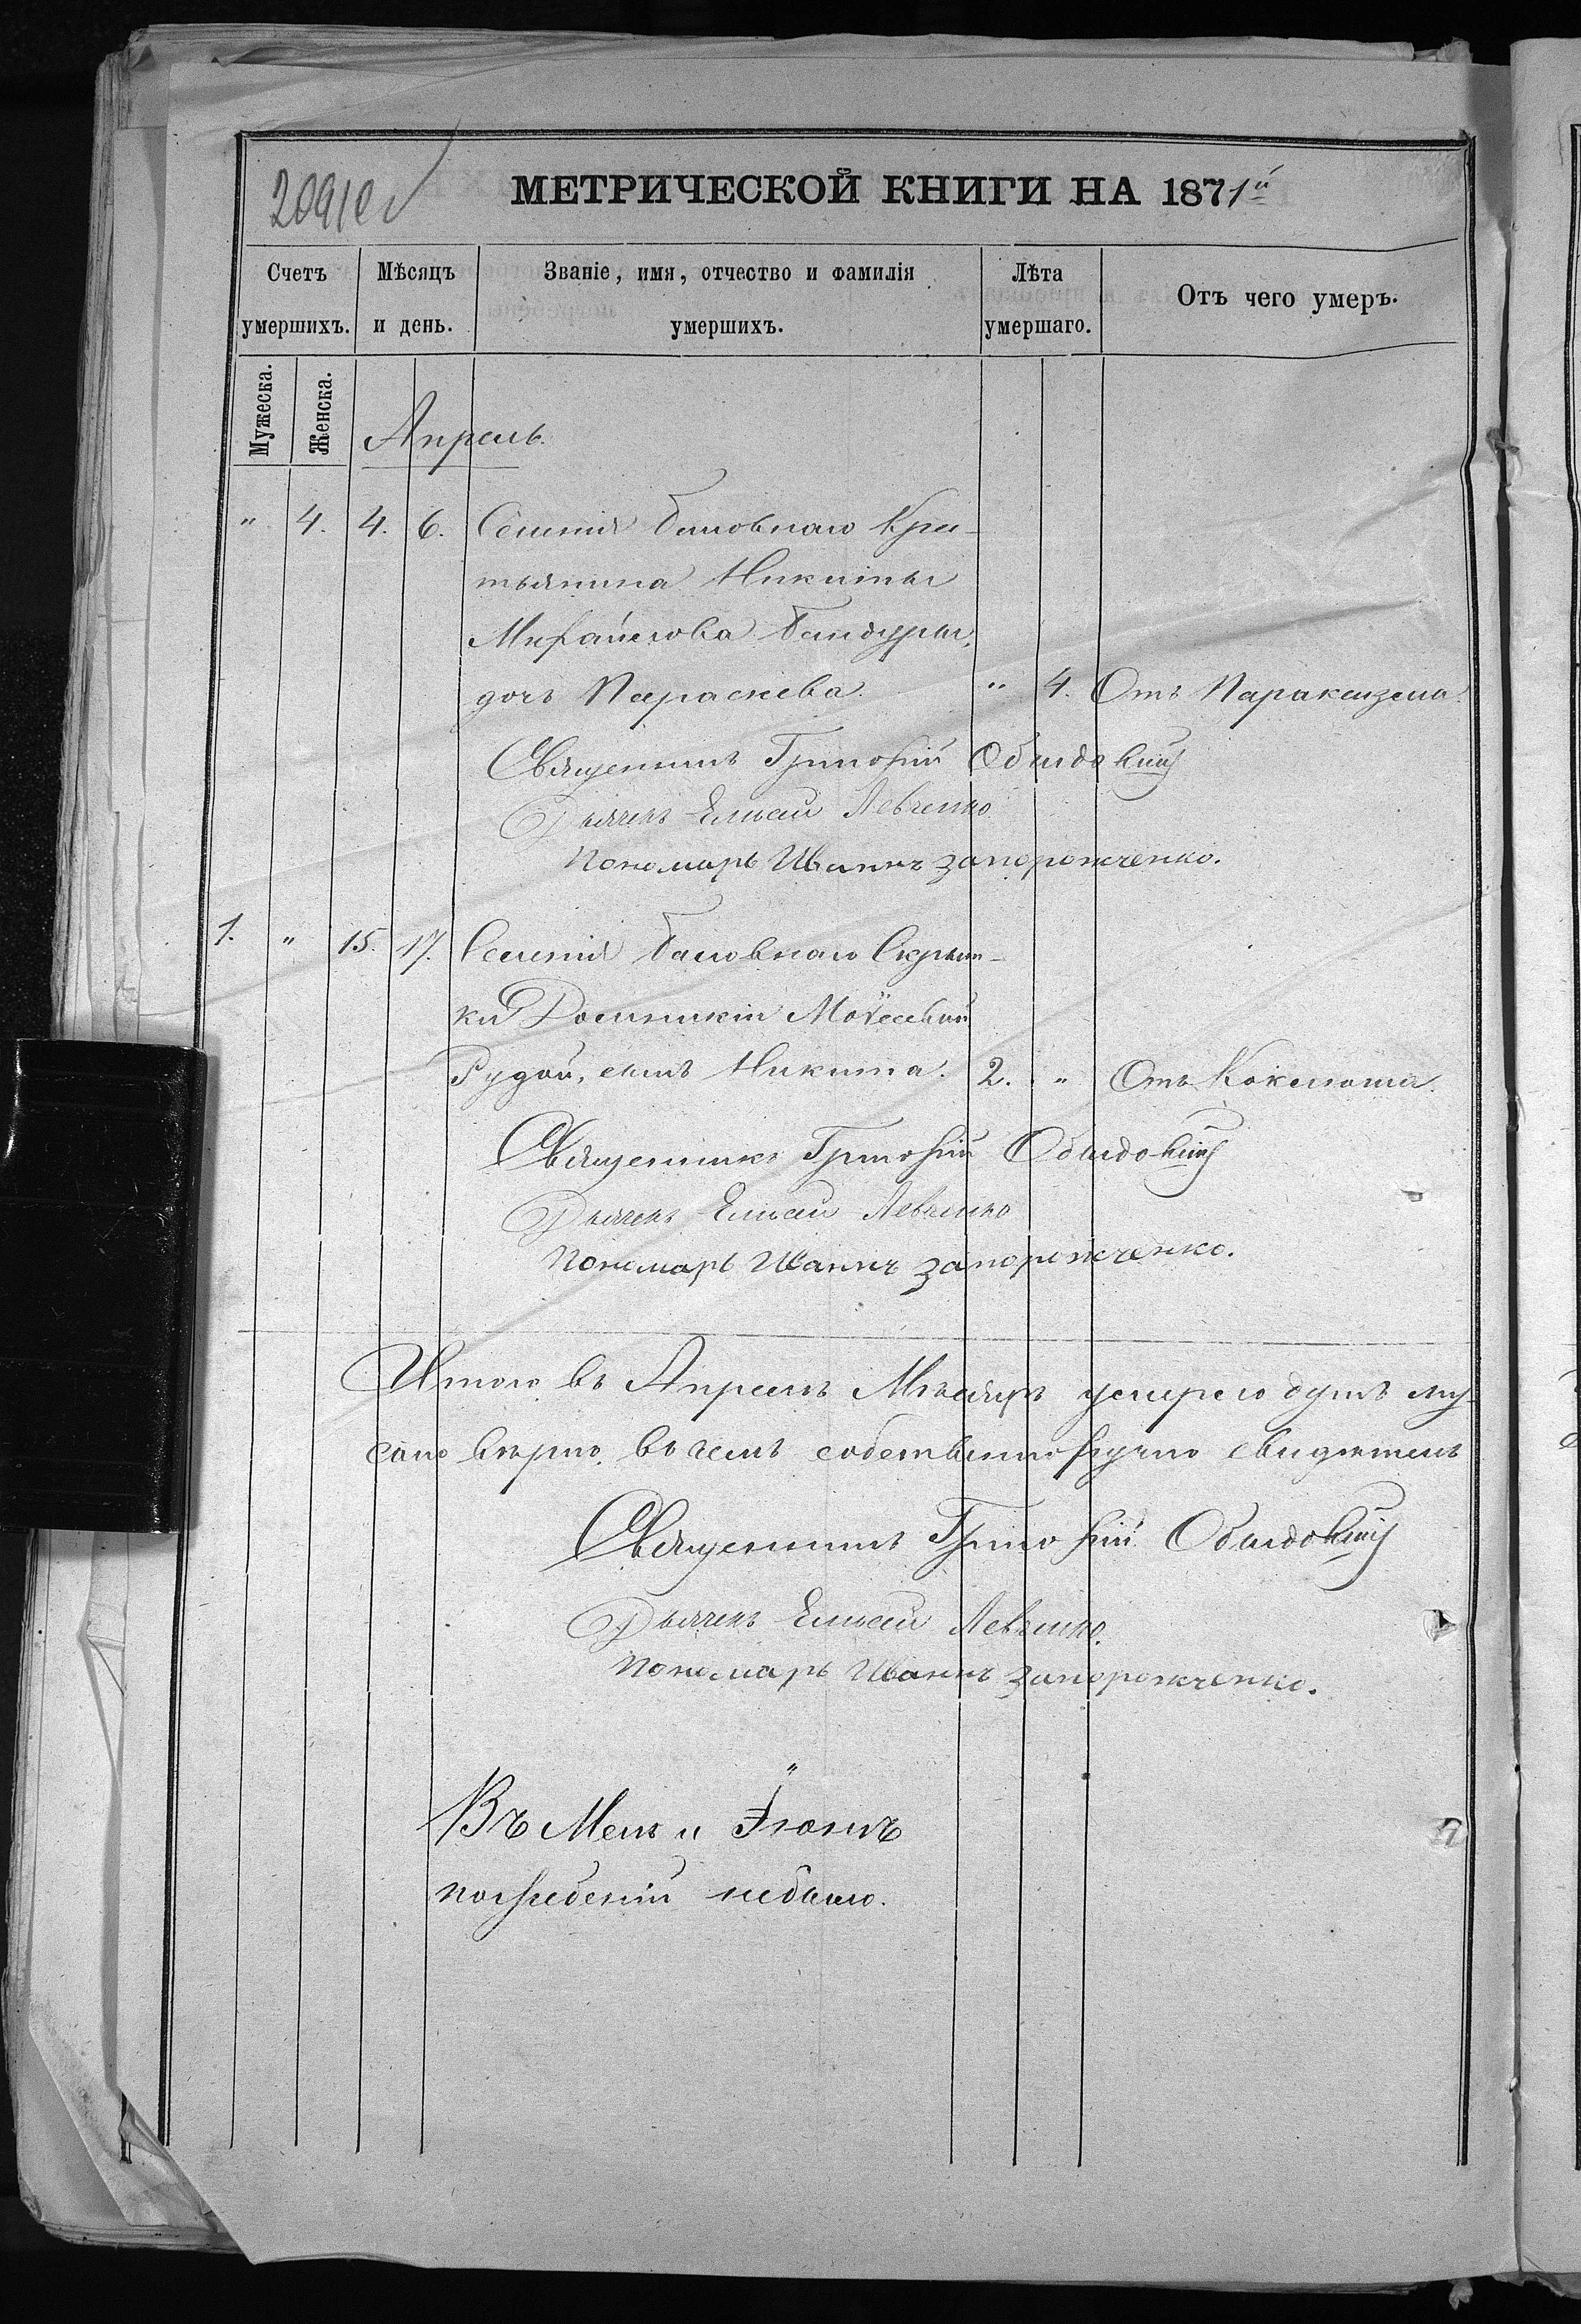 209 об
МЕТРИЧЕСКОЙ КНИГИ НА 1871й
Счетъ умершихъ.
Мѣсяцъ и день.
Званіе, имя, отчество и фамилія умершихъ.
Лѣта умершаго.
Отъ чего умеръ.
Мужеска.
Женска.
Апрель.
" 4. 4. 6. Селенія Кре-
стьянина Никиты
Михайлова Бандуры,
дочь Параскева. " 4. Отъ
Священникъ Григорій
Дьячекъ Елисей Левченко
Пономарь Иваннъ Запорожченко.
1. " 15. 17. Селенія
ки
Рудой, сынъ Никита. 2. " Отъ Коклюша.
Священникъ Григорій
Дьячекъ Елисей Левченко
Пономарь Иваннъ Запорожченко.
Итого въ Апрелѣ Мѣсяцѣ умерло душъ му-
вѣрно, въ чемъ собственноручно свидѣтель
Священникъ Григорій
Дьячекъ Елисей Левченко.
Пономарь Иваннъ Запорожченко.
Въ Маѣ и Іюнѣ
погребеній небыло.